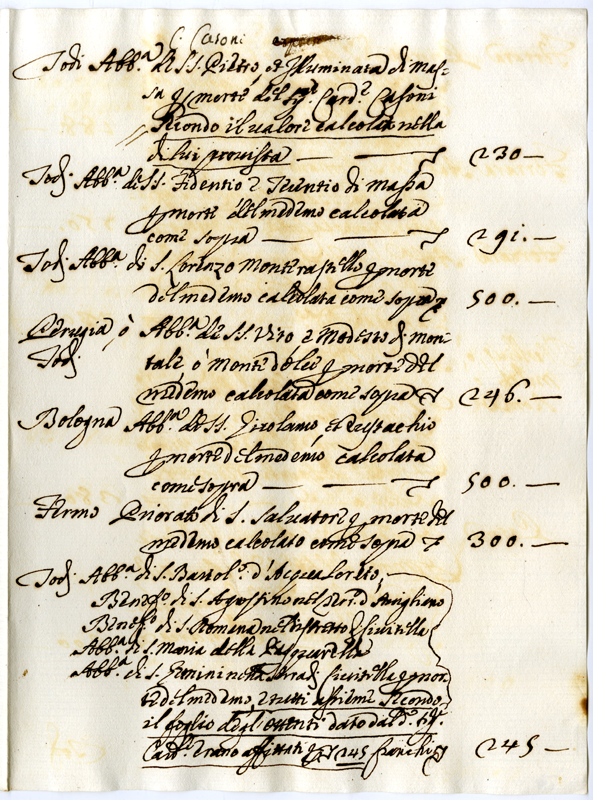 C. Casoni
Todi Abb.ª di SS. Pietro, et Illuminata di Mas-
sa p morte del Sig.r Card.e Casoni
secondo il valore calcolato nella
di lui provista — 230 —
Todi Abb.ª di SS. Fidentio e Terentio di Massa
p morte del medemo calcolata
come sopra — 291. —
Todi Abb.ª di S. Lorenzo Monterastello p morte
del medemo calcolata come sopra 500. —
Perugia, ò Abb.ª di SS. Vito e Modesto di Mon-
Todi tale ò Montedolci p morte del
medemo calcolata come sopra 246. —
Bologna Abb.ª di SS. Girolamo et Eustachio
p morte del medemo calcolata
come sopra — 500. —
Fermo Priorato di S. Salvatore p morte del
medemo calcolato come sopra 300. —
Todi Abb.ª di S. Bartol.o d'Acqua Loreto,
Benef.o di S. Agostino nel d'Avigliano
Benef.o di S. Romana nel distretto di Civitella
Abb.ª di S. Maria della
Abb.ª di S. Civitella p mor-
te del medemo, e tutti assieme secondo
il foglio degl'ottenti dato dal d.o Sig.
Card.e erano affittati p 245 franchi 245 —